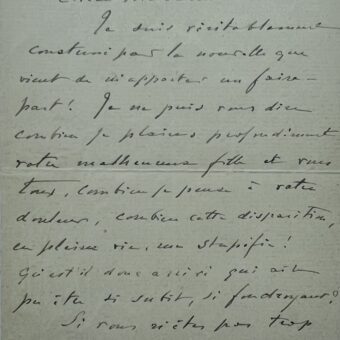 Je suis véritablement
consterné par la nouvelle que
vient de m'apporter un faire-
part! Je ne puis vous dire
combien je plains profondément
votre malheureuse fille et vous
tous, combien je pense à votre
douleur, combien cette disparition,
en pleine vie, me stupéfie!
Qu'est'il donc arrivé qui ait
pu être si subit, si foudroyant?
Si vous n'êtes pas trop